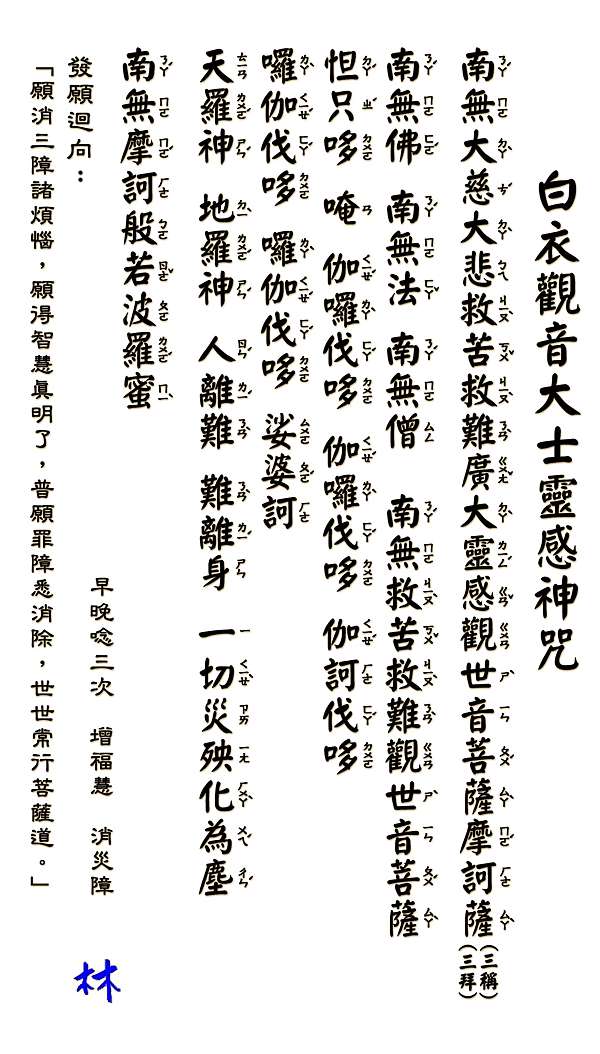 白衣觀音大士靈感神咒
南無大慈大悲救苦救難廣大靈感觀世音菩薩摩訶薩(三稱)(三拜)
南無佛 南無法 南無僧 南無救苦救難觀世音菩薩
怛只哆 唵 伽囉伐哆 伽囉伐哆 伽訶伐哆
囉伽伐哆 囉伽伐哆 娑婆訶
天羅神 地羅神 人離難 難離身 一切災殃化為塵
南無摩訶般若波羅蜜
早晚唸三次 增福慧 消災障
發願迴向：
「願消三障諸煩惱，願得智慧真明了，普願罪障悉消除，世世常行菩薩道。」
林